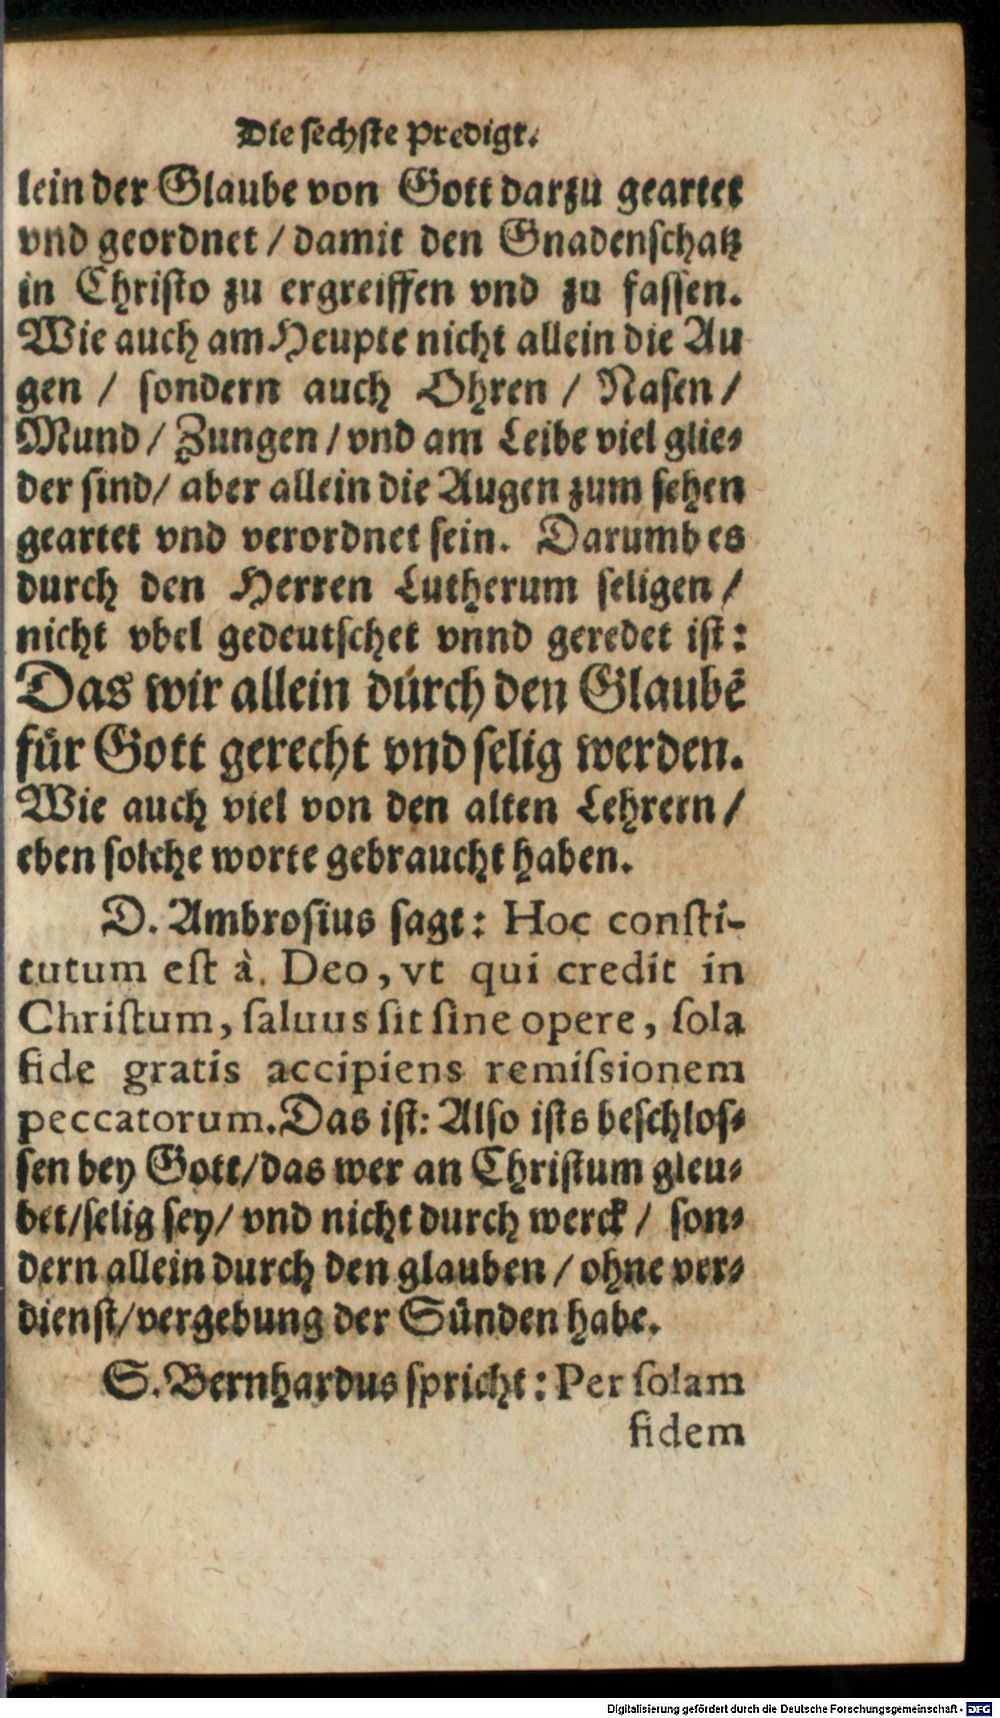 Die sechste Predigt.
lein der Glaube von Gott darzu geartet
vnd geordnet / damit den Gnadenschatz
in Christo zu ergreiffen vnd zu fassen.
Wie auch am Heupte nicht allein die Au
gen / sondern auch Ohren / Nasen /
Mund / Zungen / vnd am Leibe viel glie-
der sind / aber allein die Augen zum sehen
geartet vnd verordnet sein. Darumb es
durch den Herren Lutherum seligen /
nicht vbel gedeutschet vnnd geredet ist:
Das wir allein durch den Glaubē
für Gott gerecht vnd selig werden.
Wie auch viel von den alten Lehrern /
eben solche worte gebraucht haben.
D. Ambrosius sagt: Hoc consti-
tutum est à Deo, vt qui credit in
Christum, saluus sit sine opere, sola
fide gratis accipiens remissionem
peccatorum. Das ist: Also ists beschlos-
sen bey Gott / das wer an Christum gleu-
bet / selig sey / vnd nicht durch werck / son-
dern allein durch den glauben / ohne ver-
dienst / vergebung der Sünden habe.
S. Bernhardus spricht: Per solam
fidem
Digitalisierung gefördert durch die Deutsche Forschungsgemeinschaft - DFG